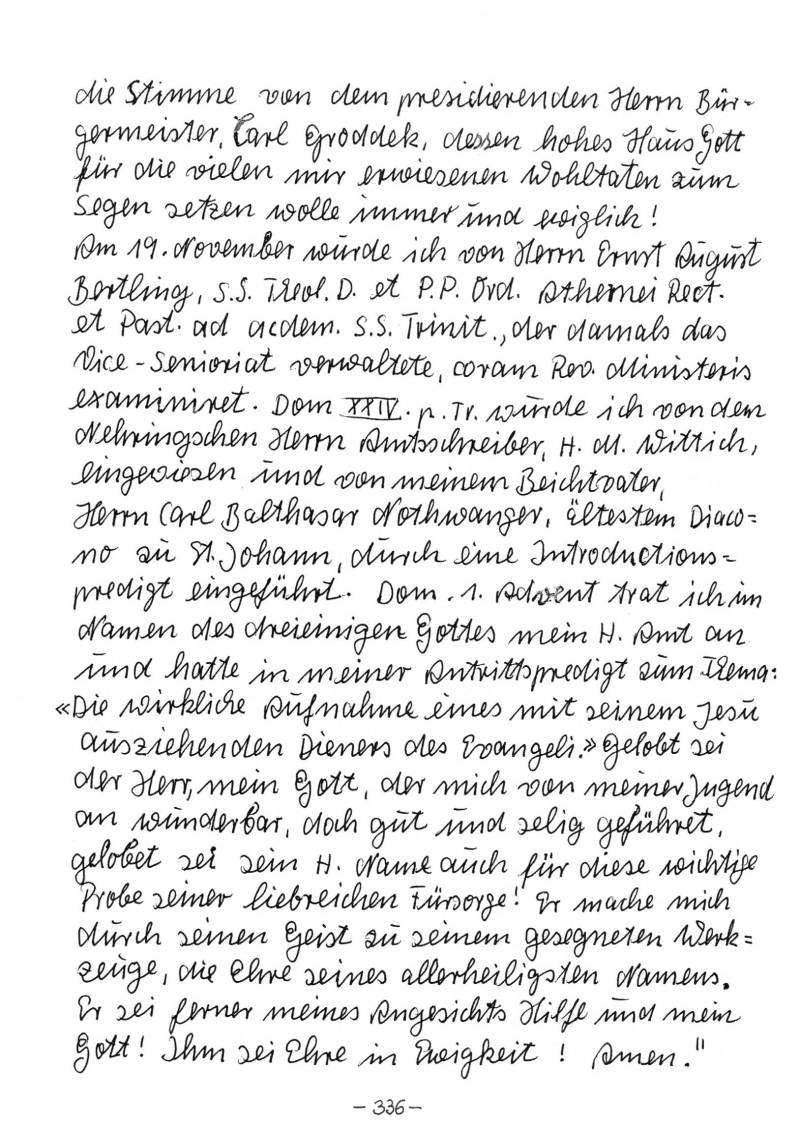 die Stimme von dem presidierenden Herrn Bür-
germeister, Carl Groddek, dessen hohes Haus Gott
für die vielen mir erwiesenen Wohltaten zum
Segen setzen wolle immer und ewiglich!
Am 19. November wurde ich von Herrn Ernst August
Bertling, S.S. Theol. D. et P.P. Ord. Athenei Rect.
et Past. ad aedem. S.S. Trinit., der damals das
Vice-Senioriat verwaltete, coram Rev. Ministeris
examiniret. Dom XXIV. p. Tr. wurde ich von dem
Nehringschen Herrn Amtsschreiber, H. M. Wittich,
eingewiesen und von meinem Beichtvater,
Herrn Carl Balthasar Nothwanger, ältestem Diaco=
no zu St. Johann, durch eine Introductions=
predigt eingeführt. Dom. 1. Advent trat ich im
Namen des dreieinigen Gottes mein H. Amt an
und hatte in meiner Antrittspredigt zum Thema:
«Die wirkliche Aufnahme eines mit seinem Jesu
ausziehenden Dieners des Evangeli.» Gelobt sei
der Herr, mein Gott, der mich von meiner Jugend
an wunderbar, doch gut und selig geführet,
gelobet sei sein H. Name auch für diese wichtige
Probe seiner liebreichen Fürsorge! Er mache mich
durch seinen Geist zu seinem gesegneten Werk=
zeuge, die Ehre seines allerheiligsten Namens.
Er sei ferner meines Angesichts Hilfe und mein
Gott! Ihm sei Ehre in Ewigkeit! Amen."
- 336 -